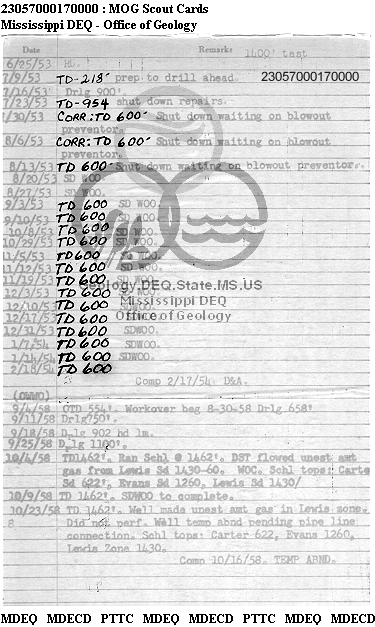 23057000170000 : MOG Scout Cards
Mississippi DEQ - Office of Geology
Date Remarks 1400' test
6/25/53 RD.
7/9/53 TD-218' prep to drill ahead. 23057000170000
7/16/53 Drlg 900'.
7/23/53 TD-954 shut down repairs.
7/30/53 CORR: TD 600' Shut down waiting on blowout
preventor.
8/6/53 CORR: TD 600' Shut down waiting on blowout
preventor.
8/13/53 TD 600 Shut down waiting on blowout preventor.
8/20/53 SD WOO.
8/27/53 SD WOO.
9/3/53 TD 600 SD WOO.
9/10/53 TD 600 SD WOO.
10/8/53 TD 600 SD WOO.
10/29/53 TD 600 SD WOO.
11/5/53 TD 600 SD WOO.
11/12/53 TD 600 SD WOO.
11/19/53 TD 600 SD WOO.
12/3/53 TD 600 SD WOO.
12/10/53 TD 600 SD WOO.
12/17/53 TD 600
12/31/53 TD 600 SDWOO.
1/7/54 TD 600 SDWOO.
1/14/54 TD 600 SDWOO.
2/18/54 TD 600
Geology.DEQ.State.MS.US
Mississippi DEQ
Office of Geology
Comp 2/17/54 D&A.
(OWWO)
9/4/58 OTD 554'. Workover beg 8-30-58 Drlg 658'
9/11/58 Drlg 750'.
9/18/58 Drlg 902 hd lm.
9/25/58 Drlg 1100'.
10/4/58 TD1462'. Ran Schl @ 1462'. DST flowed unest amt
gas from Lewis Sd 1430-60. WOC. Schl tops: Carter
Sd 622', Evans Sd 1260, Lewis Sd 1430/
10/9/58 TD 1462'. SDWOO to complete.
10/23/58 TD 1462'. Well made unest amt gas in Lewis zone.
8 Did not perf. Well temp abnd pending pipe line
connection. Schl tops: Carter 622, Evans 1260,
Lewis Zone 1430.
Comp 10/16/58. TEMP ABND.
MDEQ MDECD PTTC MDEQ MDECD PTTC MDEQ MDECD